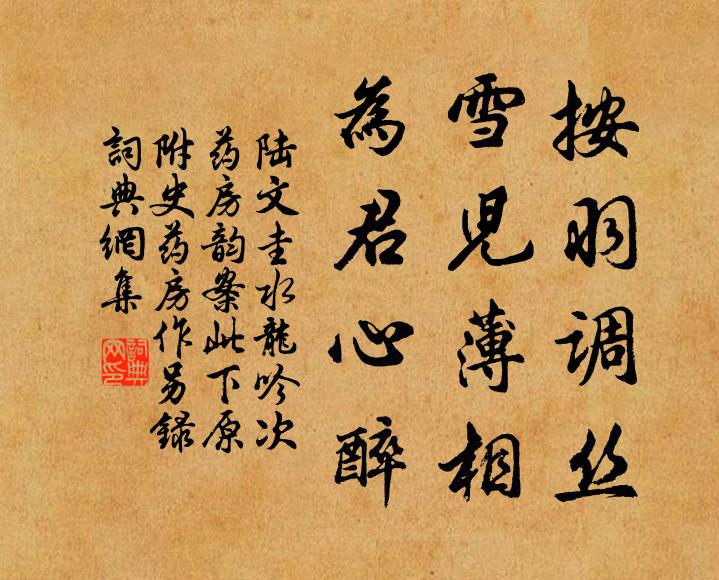 按羽调丝
雪児薄相
為君心醉
陆文圭水龍吟次
药房韵案此下原
附史药房作另錄
詞典網集
詞典
网印